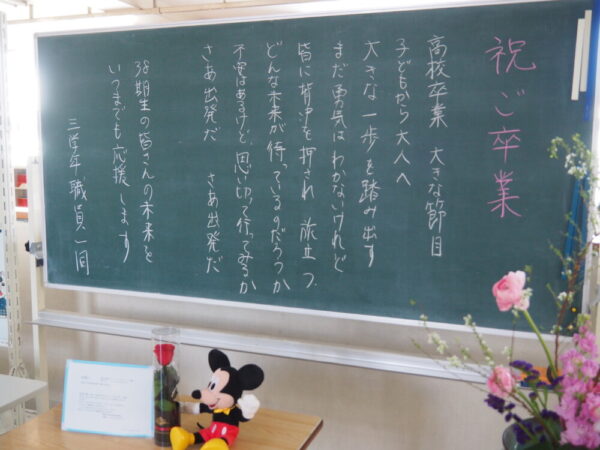 祝ご卒業
高校卒業 大きな節目
子どもから大人へ
大きな一歩を踏み出す
まだ勇気はわかないけれど
皆に背中を押され 旅立つ
どんな未来が待っているのだろうか
不安はあるけど 思い切って行ってみるか
さあ出発だ さあ出発だ
38期生の皆さんの未来を
いつまでも応援します
三学年職員一同